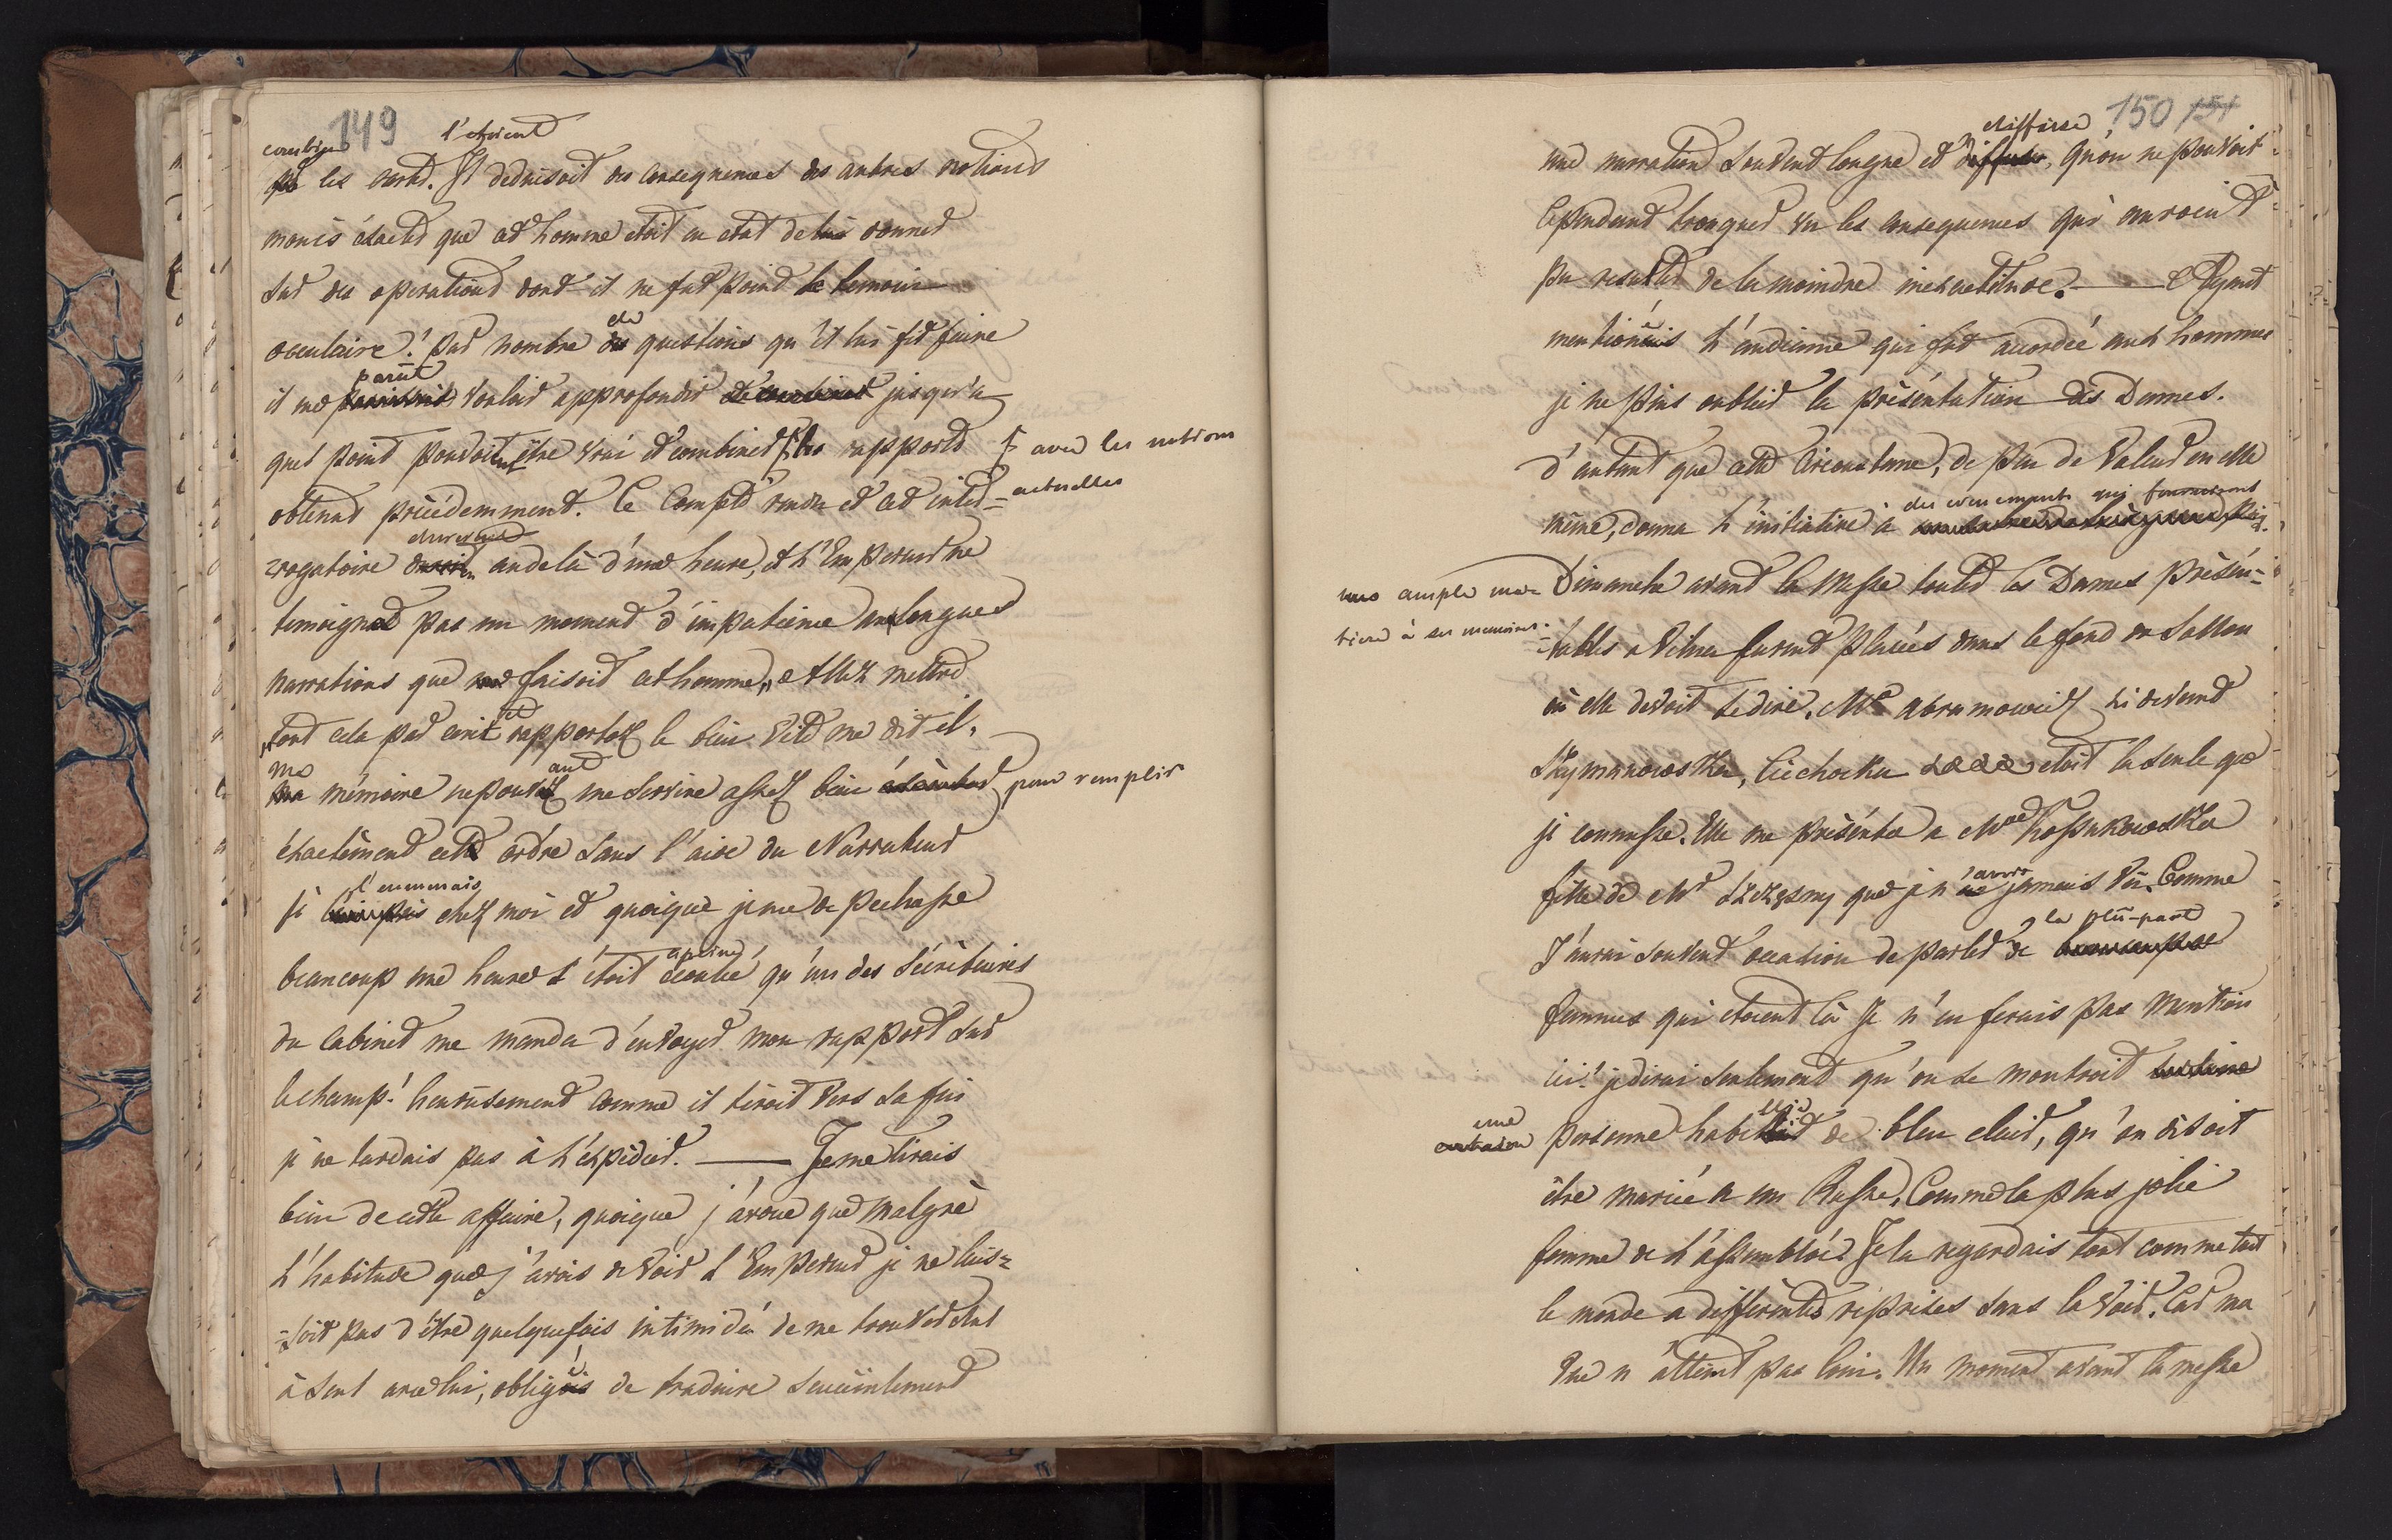 149
combien l'etoient
les autres. Il deduisoit des consequences des autres notions
moins éxactes que cet homme etoit en etat de lui donner
sur des operations dont il ne fut point le temoin
oculaire! Par nombre de questions qu'il lui fit faire
il me parut vouloir approfondir jusqu'a
quel point pouvoient être vrai et combiner les rapports avec les notions
obtenus précédemment. Ce Compte rendu et cet inter= actuelles
rogatoire durerent audela d'une heure, et l'Empereur ne
temoigna pas un moment d'impatience aux longues
narrations que faisoit cet homme, „Allez mettre
„tout cela par ecrit et rapportez le bien vite me dit-il.
ma mémoire ne pouvant me servire assez bien pour remplir
éxactement cette ordre sans l'aide du Narrateur
je l'emmenais chez moi et quoique je me depechasse
beaucoup une heure s'étoit à peine écoulée qu'un des sécrétaires
du Cabinet me manda d'envoyer mon rapport sur
le champ! heureusement comme il tiroit vers sa fin
je ne tardais pas à l'éxpédier. —— Je me tirais
bien de cette affaire, quoique j'avoue que malgré
l'habitude que j'avois de voir l'Empereur je ne lais=
=soit pas d'être quelquefois intimidé de me trouver seul
à seul avec lui, obligé de traduire succintement
150 151
une narration souvent longue et diffuse, qu'on ne pouvoit
cependant tronquer vu les consequences qui auroient
pu resulter de la moindre inexactitude. —— Ayant
mentionné l'audience qui fut accordée aux hommes
je ne puis oublier la présentation des Dames.
d'autant que cette circonstance, de peu de valeur en elle
même, donna l'initiative à des evenements qui fourniront
une ample ma= Dimanche avant la Messe toutes les Dames présen=
tiere à ses memoires. =tables a Vilna furent placées dans le fond du Sallon
où elle devoit se dire. Mde Abramowicz ci devant
Szymanowska, Cichocka etoit la seule que
je connusse. Elle me présenta a Made Kossakowska
fille de Mr Szczęsny que je n'avois jamais vu. Comme
J'aurai souvent occasion de parler de la plû-part
femmes qui etoient là Je n'en ferais pas mention
ici! je dirai seulement qu'on se montroit
une personne habillée de bleu clair, qu'on disoit
être mariée a un Russe. Comme la plus jolie
femme de l'assemblée. Je la regardais tout comme tout
le monde a differentes réprises sans la voir. Car ma
vue n'atteint pas loin. Un moment avant la messe